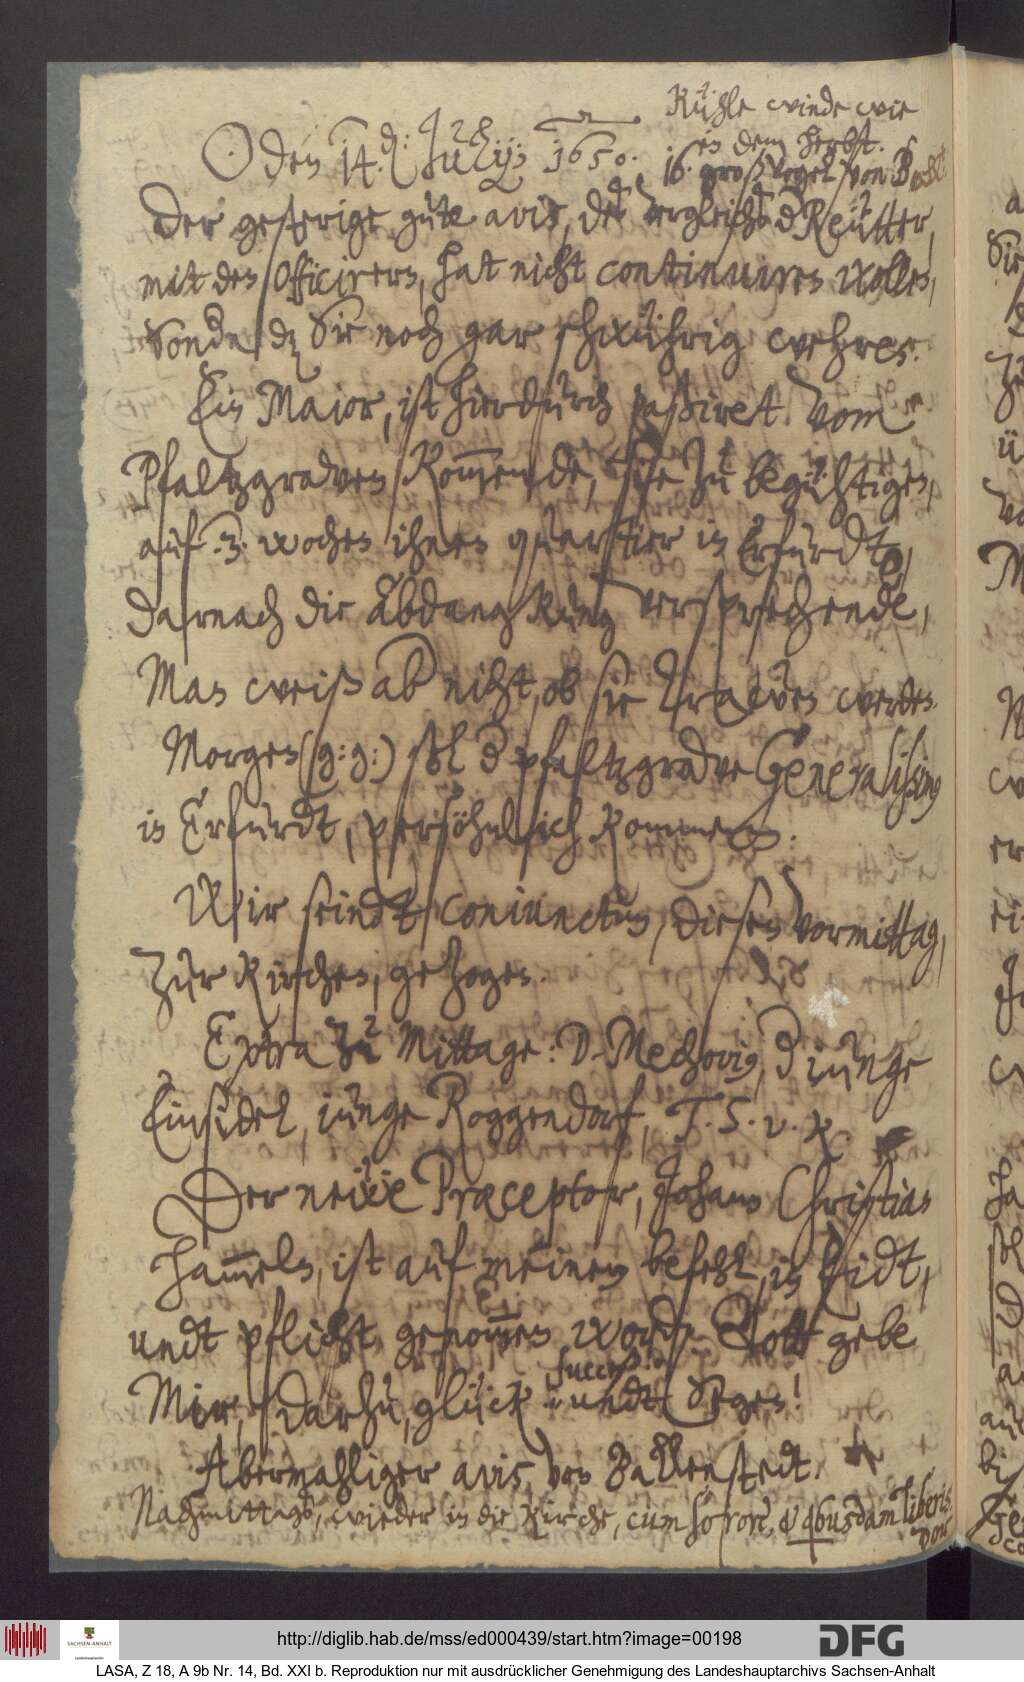 Kühle winde wie
in dem herbst.
☉ den 14. Julij: 1650.
16. groß Vögel von B
Der gesterige gute avis, des vergleichs d Reütter,
mit den Officirern, hat nicht continuiren wollen,
sondern daß Sie noch gar schwührig wehren.
Ein Major, ist hierdurch passiret vom
Pfaltzgraven kommende, Sie zu begühtigen,
auf .3. wochen ihnen quartier in Erfurdt,
darnach die Abdangkung versprechende,
Man weiß aber nicht, ob sie trawen werden.
Morgen (g: g:) soll d pfaltzgrave Generalissimus
in Erfurdt, persöhnlich kommen.
Wir seindt coniunctim, diesen Vormittag,
zur Kirchen, gezogen.
Extra zu Mittage: D. Mechovius, d iunge
Einsidel, iunge Roggendorf, T. S. v. K.
Der newe Præceptor, Johann Christian
Hammeln, ist auf meinen befehl, in Eidt,
undt pflicht, genommen worden. Gott gebe
Mir, darzu, glück succeß undt Segen!
Abermahliger avis, von Ballenstedt.
Nachmittags, wieder in die Kirche, cum sorore, & quibusdam liberis.
http://diglib.hab.de/mss/ed000439/start.htm?image=00198
SACHSEN-ANHALT
Landeshauptarchiv
DFG
LASA, Z 18, A 9b Nr. 14, Bd. XXI b. Reproduktion nur mit ausdrücklicher Genehmigung des Landeshauptarchivs Sachsen-Anhalt